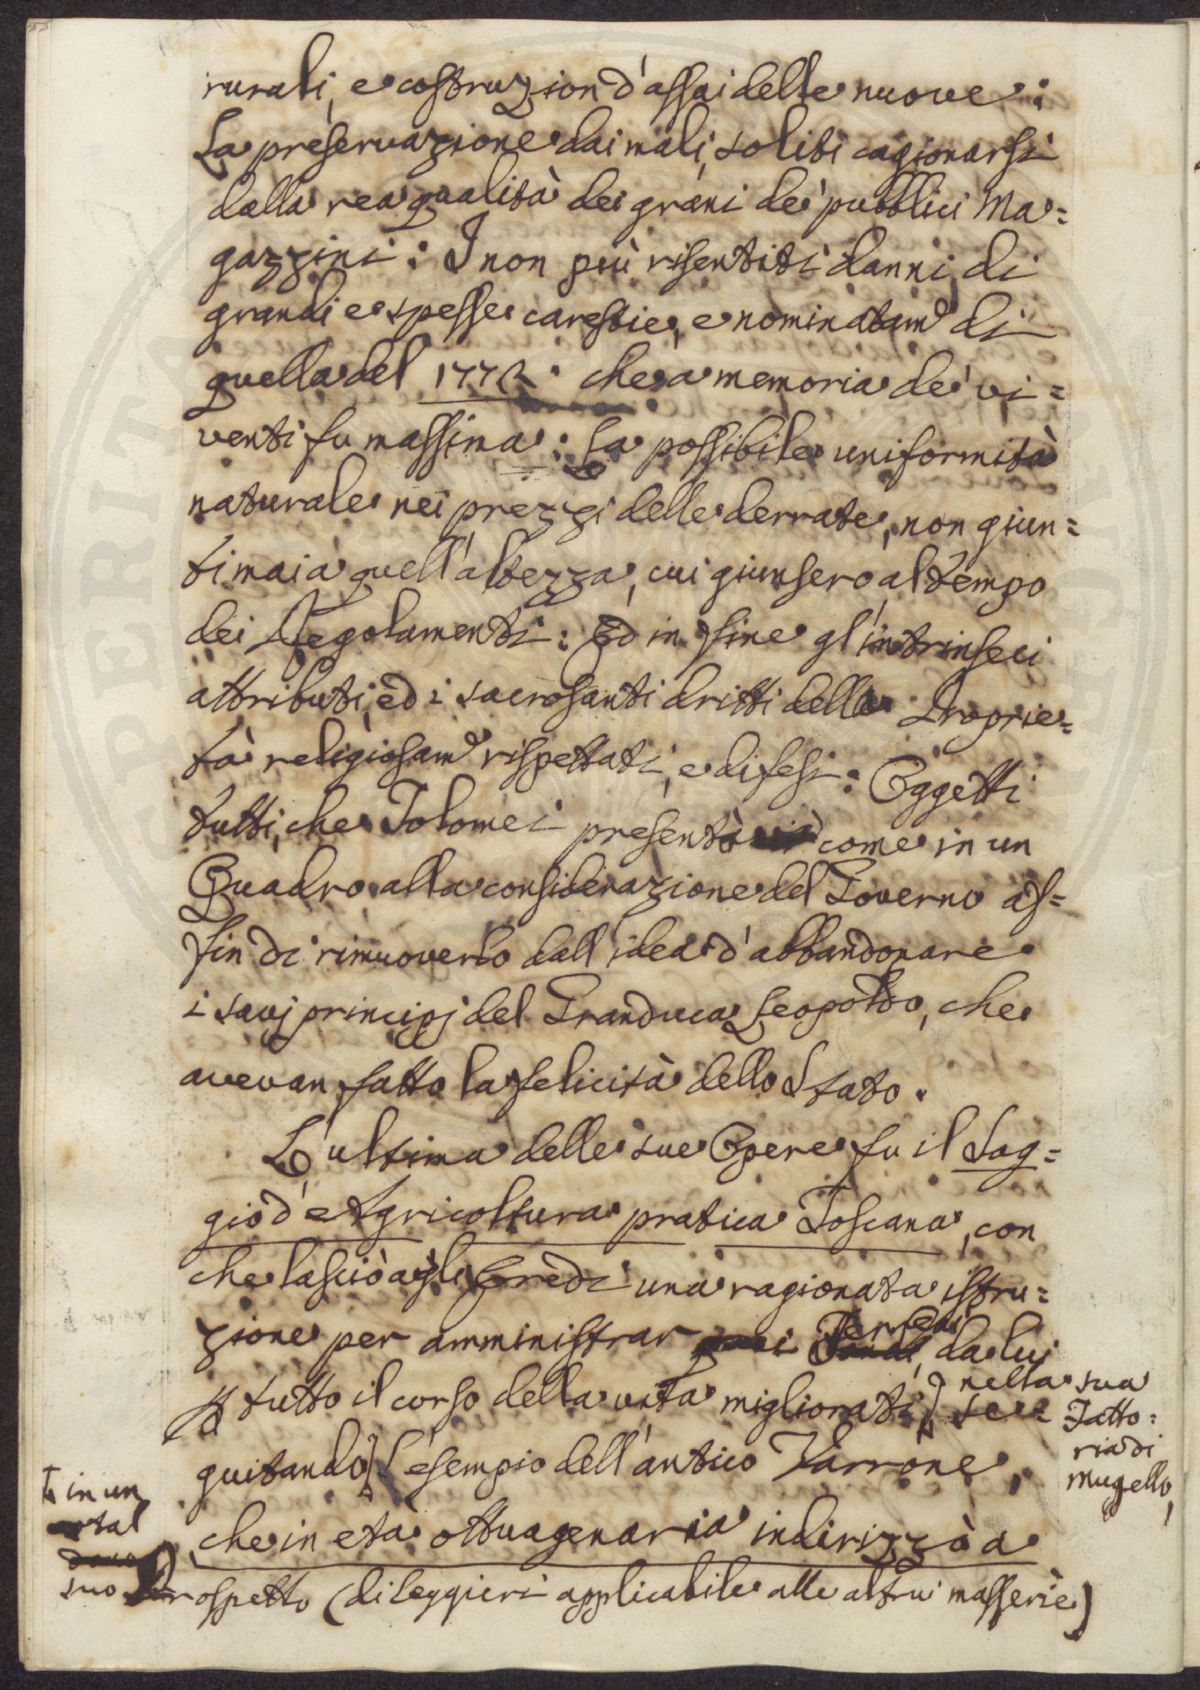 rurali, e costruzion d'assai delle nuove:
La preservazione dai mali, soliti cagionarsi
dalla rea qualità dei grani de' pubblici Ma=
gazzini: I non più risentiti danni di
grandi e spesse carestie, e nominatam.e di
quella del 1772. che a memoria de' vi=
venti fu massima: La possibile uniformità
naturale nei prezzi delle derrate, non giun=
ti mai a quell'altezza, cui giunsero al tempo
dei Regolamenti: Ed in fine gl'intrinseci
attributi, ed i sacrosanti dritti della Proprie=
tà religiosam.e rispettati, e difesi: Oggetti
tutti, che Tolomei presentò come in un
Quadro alla considerazione del Governo af=
fin di rimuoverlo dall'idea d'abbandonare
i savj principj del Granduca Leopoldo, che
avevan fatto la felicità dello Stato.
L'ultima delle sue Opere fu il Sag=
gio d'Agricoltura pratica Toscana, con
che lasciò agli Eredi una ragionata istru=
zione per amministrar i Terreni, da lui
p tutto il corso della vita migliorati, nella sua
Fatto=
ria di
Mugello,
se=
guitando l'esempio dell'antico Varrone,
che in età ottuagenaria indirizzò a
in un
tal
suo Prospetto (di leggieri applicabile alle altrui masserie)
SPERITA